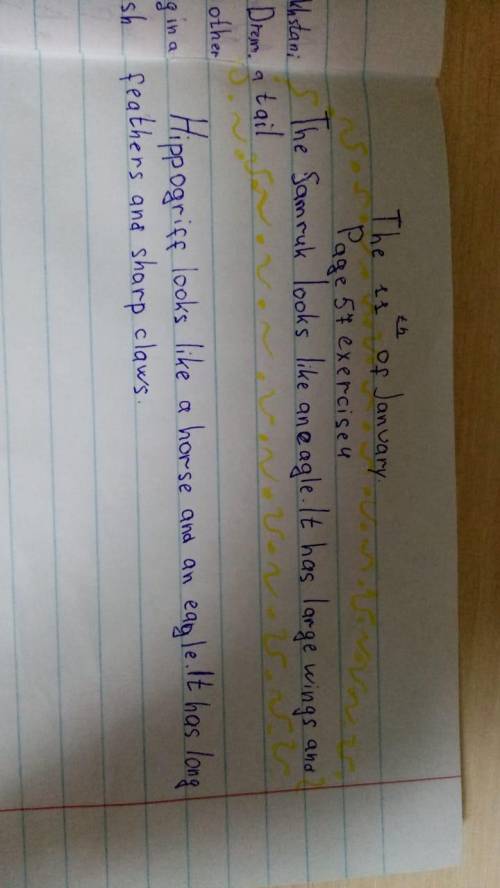 The 11th of January.
Page 57 exercise 4
The Samruk looks like an eagle. It has large wings and
a tail
Hippogriff looks like a horse and an eagle. It has long
feathers and sharp claws.
khstani
Drem.
other
g in a
sh